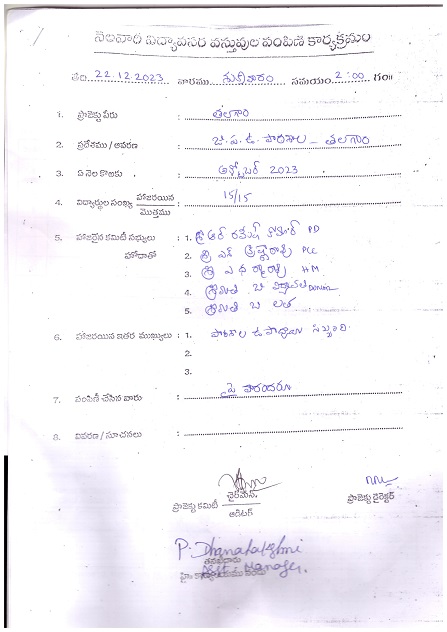 నెలవారి విద్యావసర వస్తువుల పంపిణి కార్యక్రమం
తేది: 22.12.2023 వారము శనివారం సమయం 2:00 గం॥
1. ప్రాజెక్టు పేరు : తలగాం
2. ప్రదేశము / ఆవరణ : జి.ప.ఉ. పాఠశాల - తలగాం
3. ఏ నెల కొఱకు : అక్టోబర్ 2023
4. విద్యార్థుల సంఖ్య హాజరయిన / మొత్తము : 15/15
5. హాజరైన కమిటీ సభ్యులు : 1. శ్రీ ఆర్ రమేష్ కుమార్ PD
హోదాతో 2. శ్రీ ఎన్ PCC
3. శ్రీ HM
4. శ్రీమతి జి Donor
5. శ్రీమతి జి లత
6. హాజరయిన ఇతర ముఖ్యులు : 1. పాఠశాల ఉపాధ్యాయ సిబ్బంది.
2.
3.
7. పంపిణీ చేసిన వారు : పై వారందరూ
8. వివరణ / సూచనలు :
ప్రాజెక్టు కమిటీ చైర్మన్. / ఆడిటర్ ప్రాజెక్టు డైరెక్టర్
P. Dhanalakshmi
Manager.